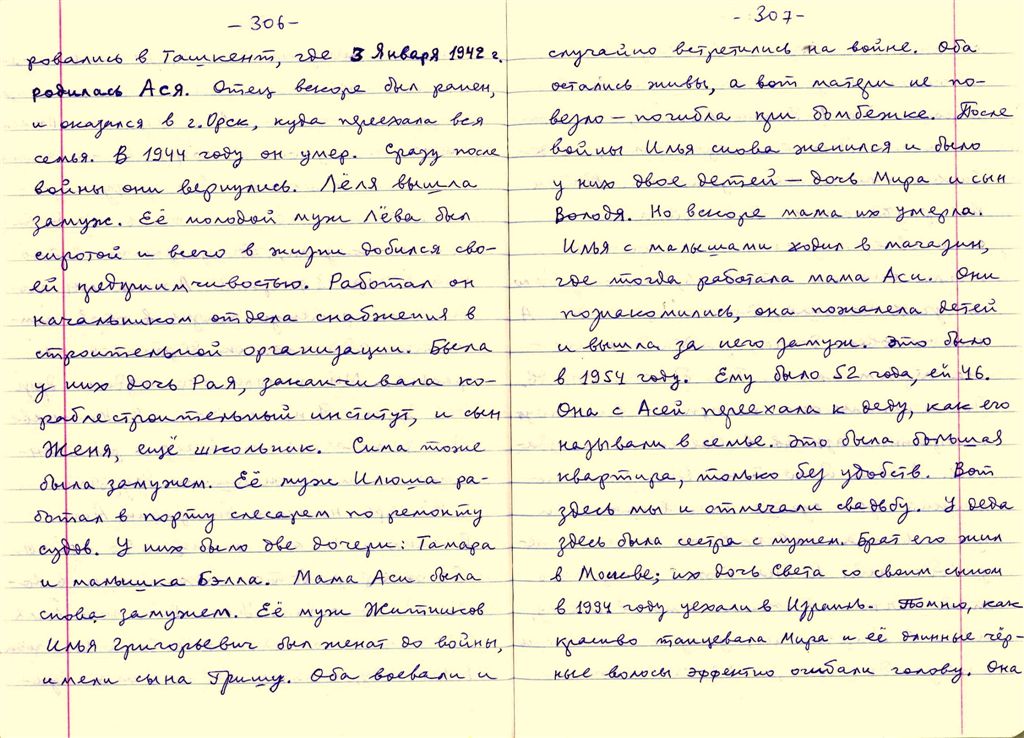 – 306 –
ровались в Ташкент, где 3 Января 1942 г.
родилась Ася. Отец вскоре был ранен,
и оказался в г. Орск, куда переехала вся
семья. В 1944 году он умер. Сразу после
войны они вернулись. Лёля вышла
замуж. Её молодой муж Лёва был
сиротой и всего в жизни добился сво-
ей предприимчивостью. Работал он
начальником отдела снабжения в
строительной организации. Была
у них дочь Рая, заканчивала ко-
раблестроительный институт, и сын
Женя, ещё школьник. Сима тоже
была замужем. Её муж Илюша ра-
ботал в порту слесарем по ремонту
судов. У них было две дочери: Тамара
и малышка Бэлла. Мама Аси была
снова замужем. Её муж Житников
Илья Григорьевич был женат до войны,
имели сына Гришу. Оба воевали и
– 307 –
случайно встретились на войне. Оба
остались живы, а вот матери не по-
везло – погибла при бомбежке. После
войны Илья снова женился и было
у них двое детей – дочь Мира и сын
Володя. Но вскоре мама их умерла.
Илья с малышами ходил в магазин,
где тогда работала мама Аси. Они
познакомились, она пожалела детей
и вышла за него замуж. Это было
в 1954 году. Ему было 52 года, ей 46.
Она с Асей переехала к деду, как его
называли в семье. Это была большая
квартира, только без удобств. Вот
здесь мы и отмечали свадьбу. У деда
здесь была сестра с мужем. Брат его жил
в Москве; их дочь Света со своим сыном
в 1994 году уехали в Израиль. Помню, как
красиво танцевала Мира и её длинные чёр-
ные волосы эффектно огибали голову. Она